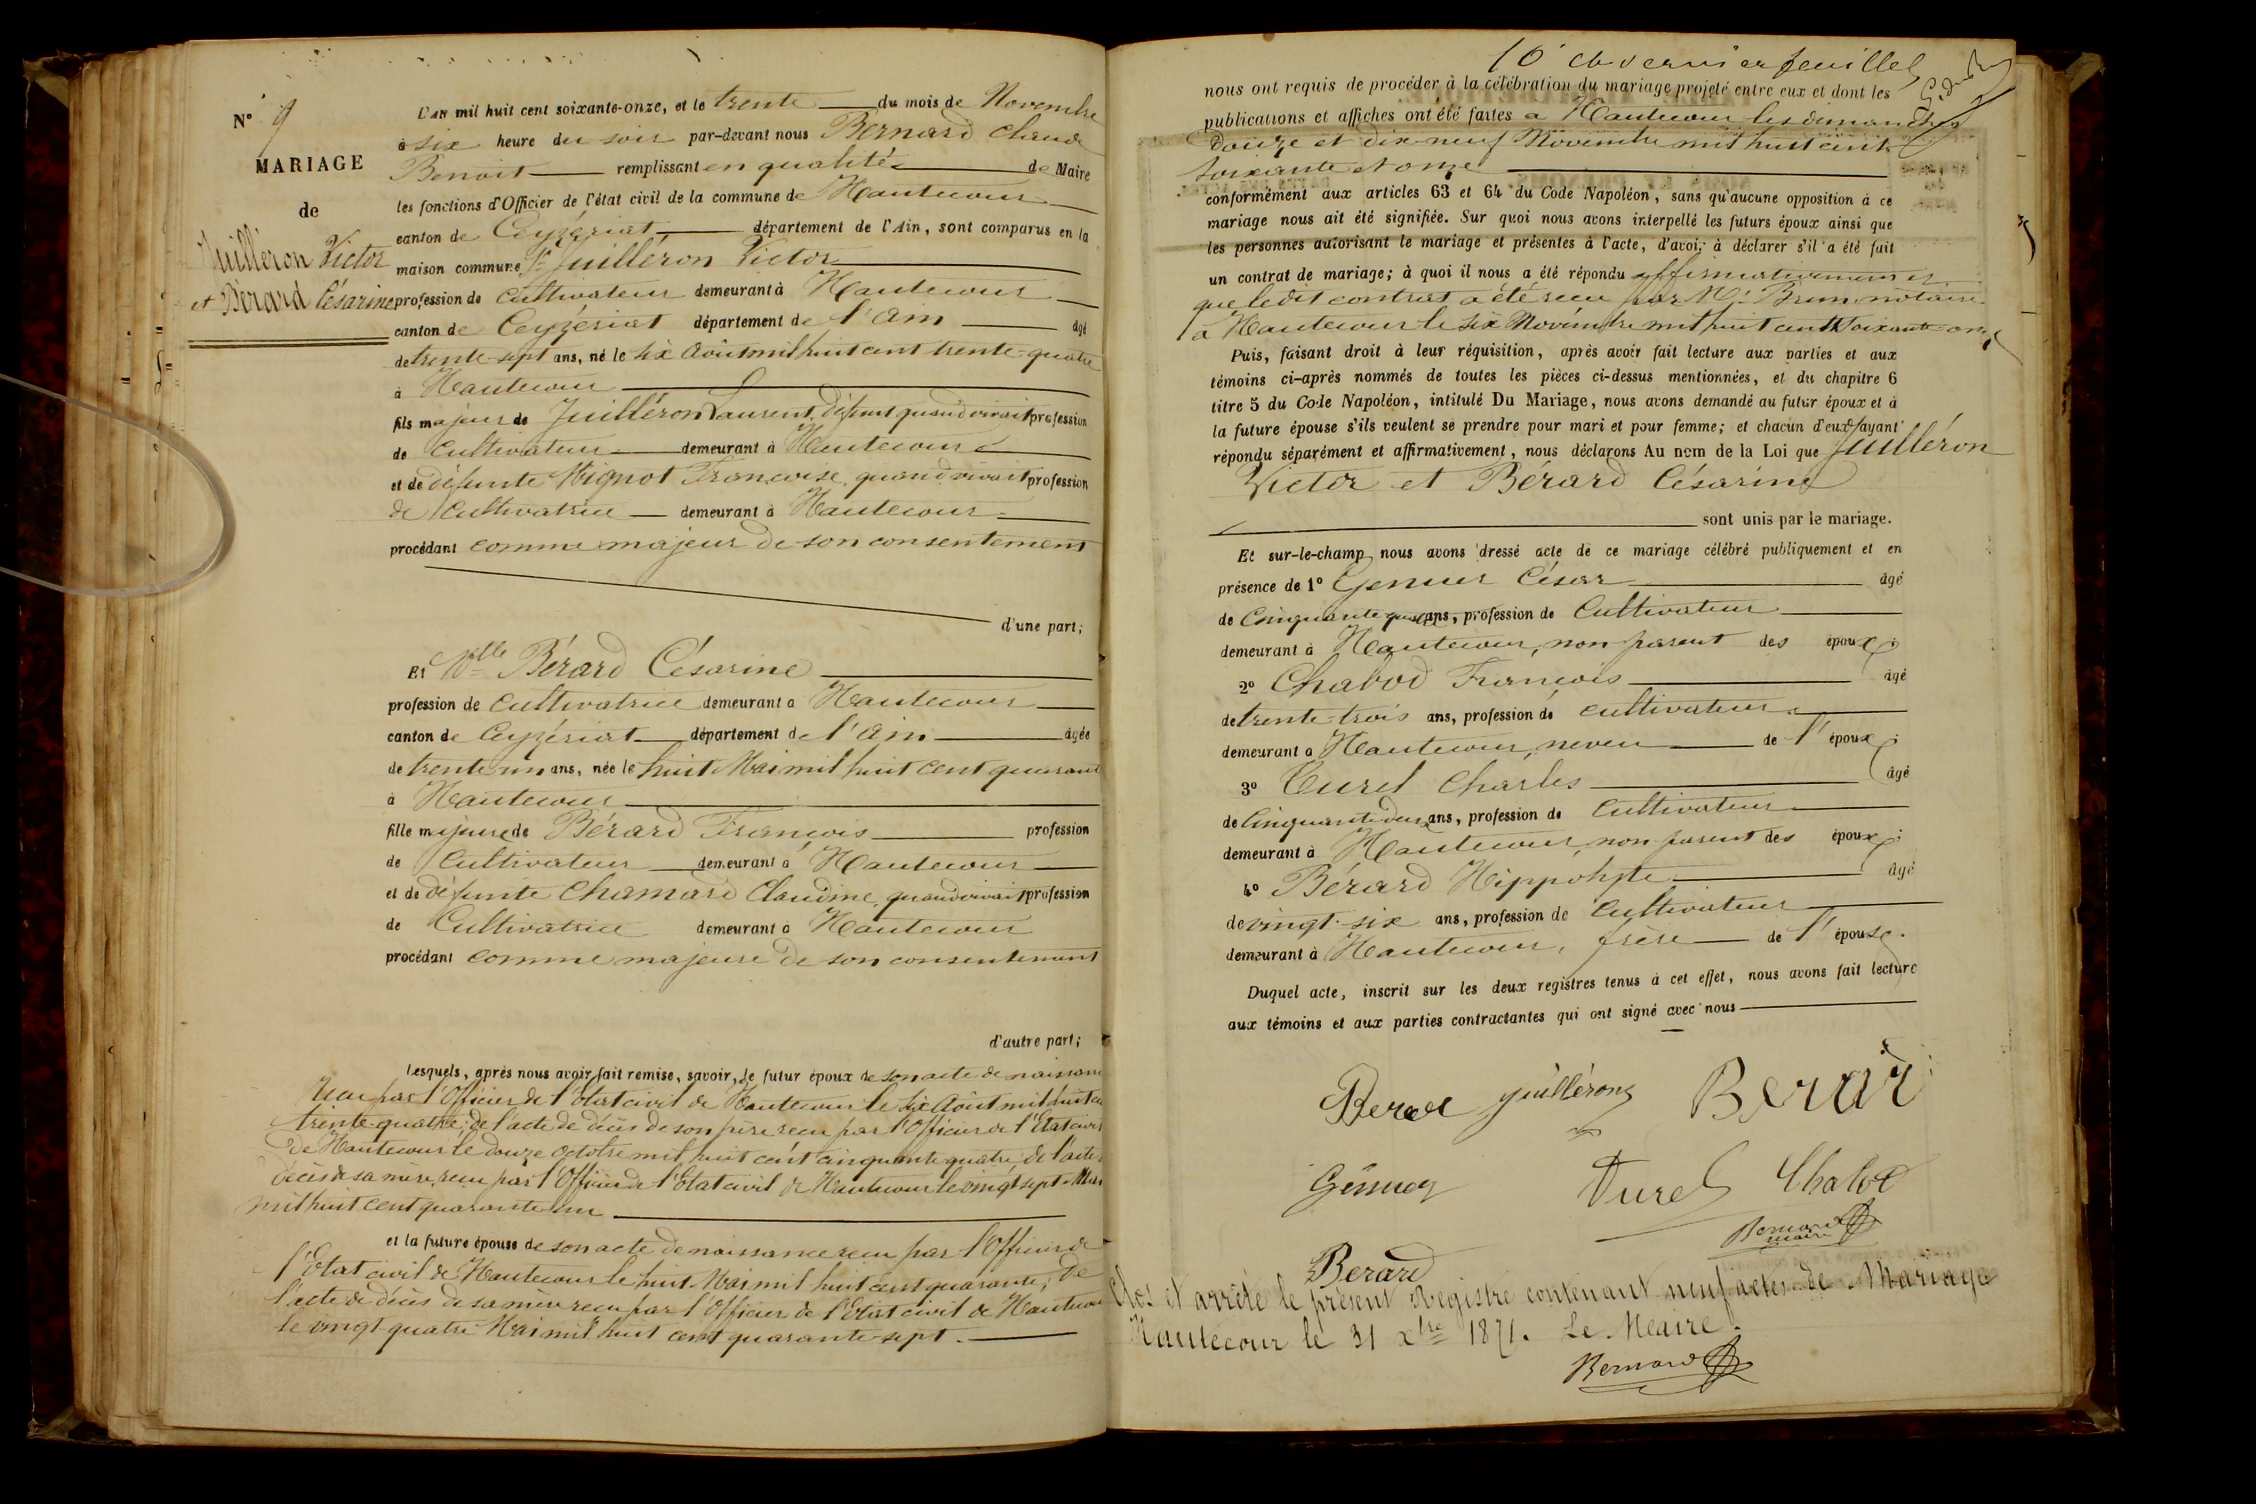 N° 9
MARIAGE
de
Juilléron Victor
et Bérard Césarine
L'an mil huit cent soixante-onze, et le trente du mois de Novembre
à six heure du soir par-devant nous Bernard Claude
Benoit remplissant en qualité de Maire
les fonctions d'Officier de l'état civil de la commune de Hautecour
canton de Ceyzériat département de l'Ain, sont comparus en la
maison commune Sr Juilléron Victor
profession de cultivateur demeurant à Hautecour
canton de Ceyzériat département de l'Ain âgé
de trente-sept ans, né le six Août mil huit cent trente-quatre
à Hautecour
fils majeur de Juilléron Laurent, défunt quand vivait profession
de cultivateur demeurant à Hautecour
et de défunte Mignot Françoise, quand vivait profession
de cultivatrice demeurant à Hautecour
procédant comme majeur de son consentement
d'une part;
Et Dlle Bérard Césarine
profession de cultivatrice demeurant à Hautecour
canton de Ceyzériat département de l'Ain âgée
de trente-un ans, née le huit Mai mil huit cent quarante
à Hautecour
fille majeure de Bérard François profession
de cultivateur demeurant à Hautecour
et de défunte Chamard Claudine, quand vivait profession
de Cultivatrice demeurant à Hautecour
procédant comme majeure de son consentement
d'autre part;
Lesquels, après nous avoir fait remise, savoir, le futur époux de son acte de naissance
reçu par l'Officier de l'état civil de Hautecour le six Août mil huit cent
trente-quatre; de l'acte de décès de son père reçu par l'Officier de l'Etat civil
de Hautecour le douze Octobre mil huit cent cinquante quatre, de l'acte
décès de sa mère, reçu par l'Officier de l'Etat civil de Hautecour le vingt sept Mai
mil huit cent quarante-un
et la future épouse de son acte de naissance reçu par l'Officier de
l'Etat civil de Hautecour le huit Mai mil huit cent quarante; de
l'acte de décès de sa mère reçu par l'Officier de l'Etat civil de Hautecour
le vingt quatre Mai mil huit cent quarante-sept.
10e et dernier feuillet
nous ont requis de procéder à la célébration du mariage projeté entre eux et dont les
publications et affiches ont été faites à Hautecour les dimanches
douze et dix-neuf Novembre mil huit cent
soixante et onze
conformément aux articles 63 et 64 du Code Napoléon, sans qu'aucune opposition à ce
mariage nous ait été signifiée. Sur quoi nous avons interpellé les futurs époux ainsi que
les personnes autorisant le mariage et présentes à l'acte, d'avoir à déclarer s'il a été fait
un contrat de mariage; à quoi il nous a été répondu affirmativement et
que ledit contrat a été reçu par Me Brun notaire
à Hautecour le six Novembre mil huit cent soixante-onze
Puis, faisant droit à leur réquisition, après avoir fait lecture aux parties et aux
témoins ci-après nommés de toutes les pièces ci-dessus mentionnées, et du chapitre 6
titre 5 du Code Napoléon, intitulé Du Mariage, nous avons demandé au futur époux et à
la future épouse s'ils veulent se prendre pour mari et pour femme; et chacun d'eux ayant
répondu séparément et affirmativement, nous déclarons Au nom de la Loi que Juilléron
Victor et Bérard Césarine
sont unis par le mariage.
Et sur-le-champ nous avons dressé acte de ce mariage célébré publiquement et en
présence de 1° César âgé
de ans, profession de Cultivateur
demeurant à Hautecour, non parent des époux;
2° Chabod François âgé
de trente-trois ans, profession de cultivateur
demeurant à Hautecour, neveu de l'époux;
3° Curel Charles âgé
de cinquante-deux ans, profession de Cultivateur
demeurant à Hautecour, non parent des époux;
4° Bérard Hippolyte âgé
de vingt-six ans, profession de Cultivateur
demeurant à Hautecour, frère de l'épouse.
Duquel acte, inscrit sur les deux registres tenus à cet effet, nous avons fait lecture
aux témoins et aux parties contractantes qui ont signé avec nous
Juilléron
Berar
Curel
Chabod
Bernard
maire
Berard
Clos et arrêté le présent Registre contenant neuf actes de Mariage
Hautecour le 31 xbre 1871. Le Maire.
Bernard